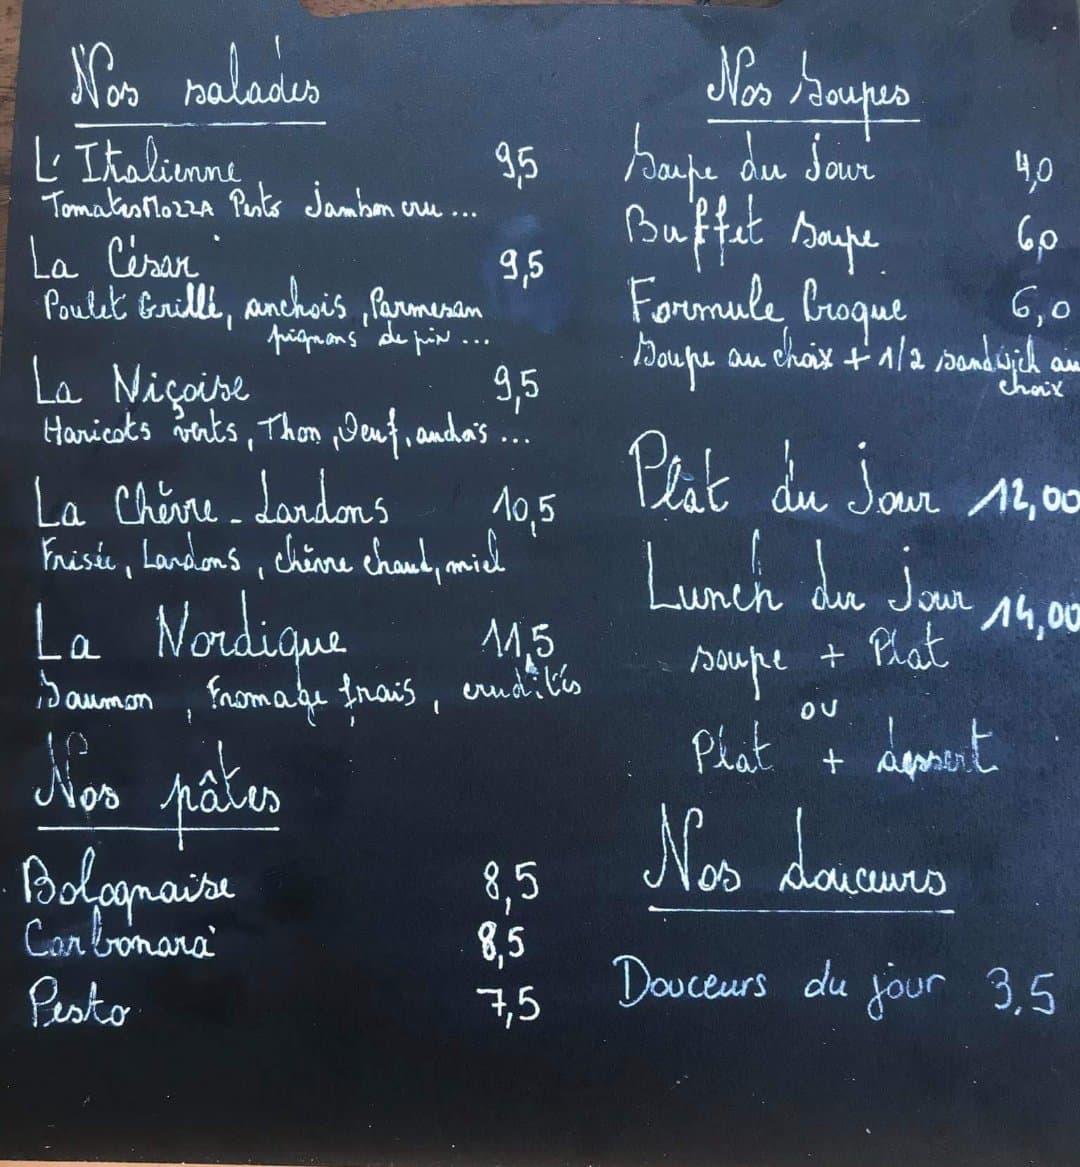 Nos salades
L'Italienne 9,5
Tomates Mozza Pesto Jambon cru ...
La César 9,5
Poulet Grillé, anchois, Parmesan
pignons de pin ...
La Niçoise 9,5
Haricots verts, Thon, Oeuf, anchois ...
La Chèvre - Lardons 10,5
Frisée, Lardons, chèvre chaud, miel
La Nordique 11,5
Saumon, Fromage frais, crudités
Nos pâtes
Bolognaise 8,5
Carbonara 8,5
Pesto 7,5
Nos Soupes
Soupe du Jour 4,0
Buffet Soupe 6,0
Formule Croque 6,0
Soupe au choix + 1/2 sandwich au
choix
Plat du Jour 12,00
Lunch du Jour 14,00
soupe + Plat
ou
Plat + dessert
Nos douceurs
Douceurs du jour 3,5